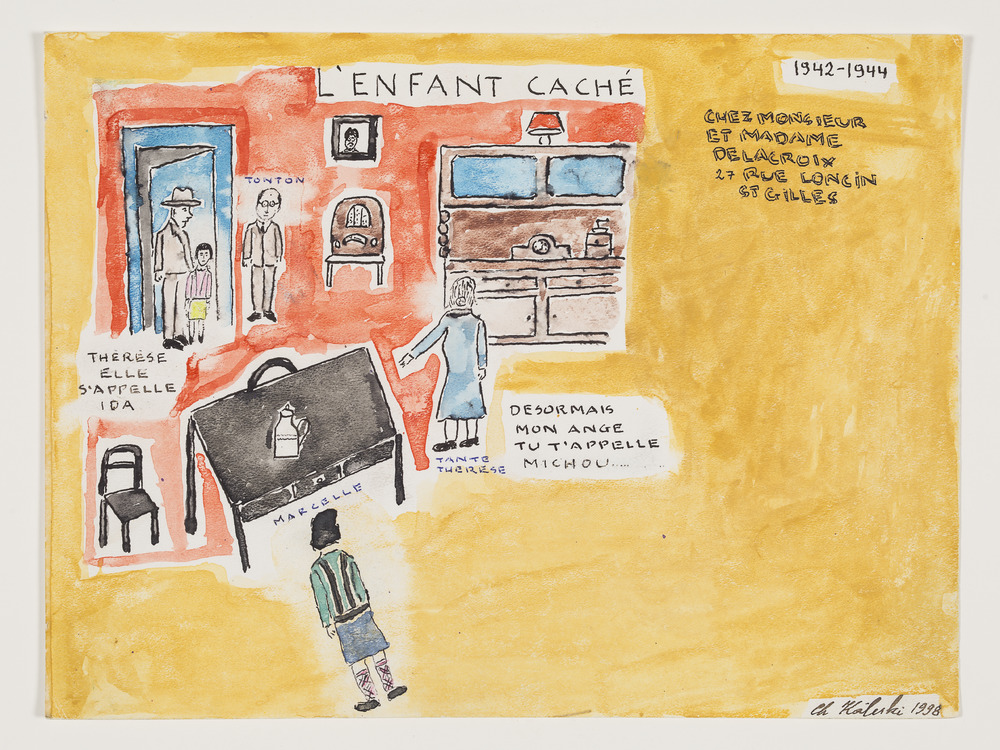 L'ENFANT CACHÉ
1942-1944
CHEZ MONSIEUR
ET MADAME
DELACROIX
27 RUE LONCIN
ST GILLES
TONTON
THÉRÈSE
ELLE
S'APPELLE
IDA
DESORMAIS
MON ANGE
TU T'APPELLE
MICHOU.....
TANTE
THERÈSE
MARCELLE
Ch 1998